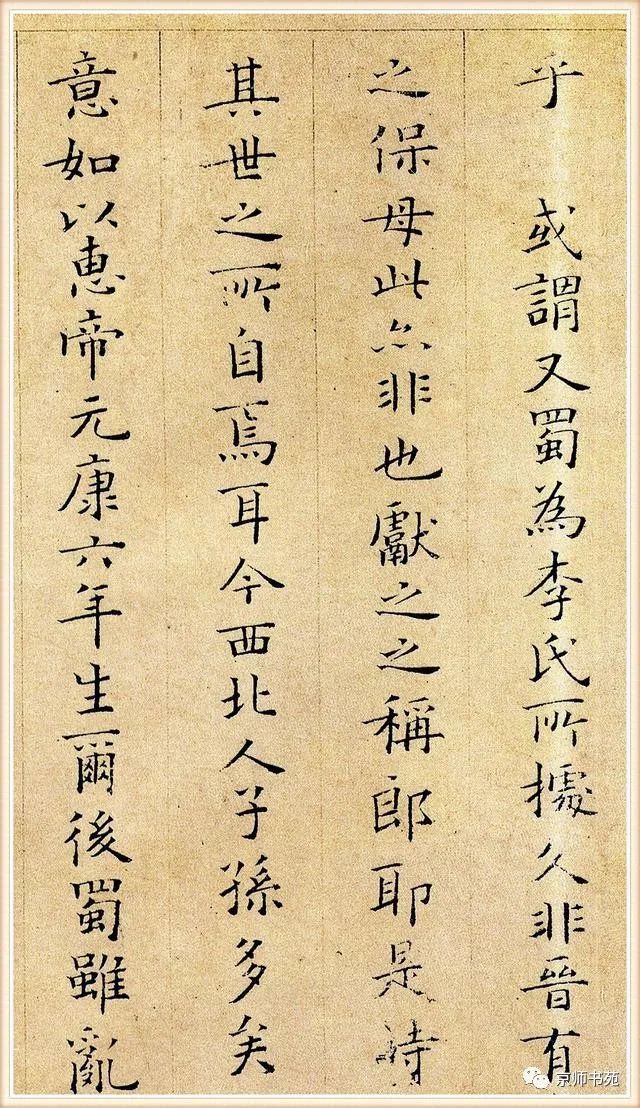 乎 或謂又蜀為李氏所據久非晉有
之保母此亦非也獻之之稱郎耶是特
其世之所自焉耳今西北人子孫多矣
意如以惠帝元康六年生爾後蜀雖亂
京师书苑